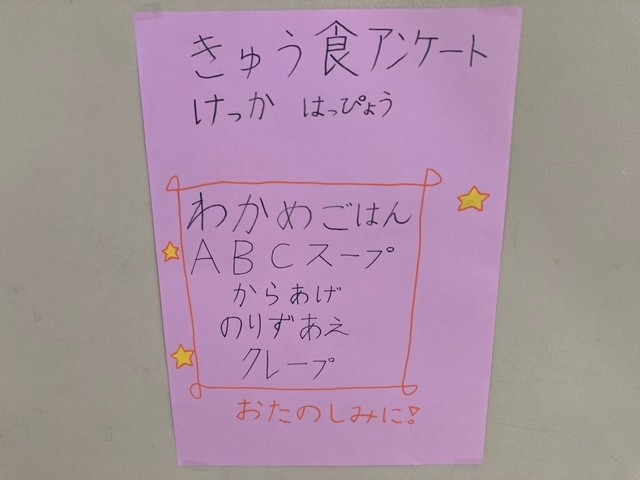 きゅう食アンケート
けっか はっぴょう
わかめごはん
ABCスープ
からあげ
のりずあえ
クレープ
おたのしみに!